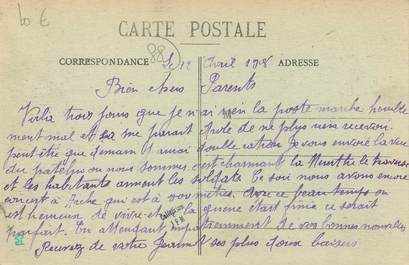 10 €
CARTE POSTALE
88
CORRESPONDANCE Le 12 Avril 1918 ADRESSE
Bien chers Parents
Voilà trois jours que je n'ai rien la poste marche horrible
ment mal et ça me parait drole de ne plus rien recevoir
peut être que demain j'aurai double ration Je vous envoie la vue
du patelin où nous sommes c'est charmant la Meurthe le traverse
et les habitants aiment les soldats Ce soir nous avons encore
concert à qui est à vos Avec ce beau temps on
est heureux de vivre et si la guerre était finie ce serait
parfait. En attendant de vos bonnes nouvelles
Recevez de votre ses plus doux baisers